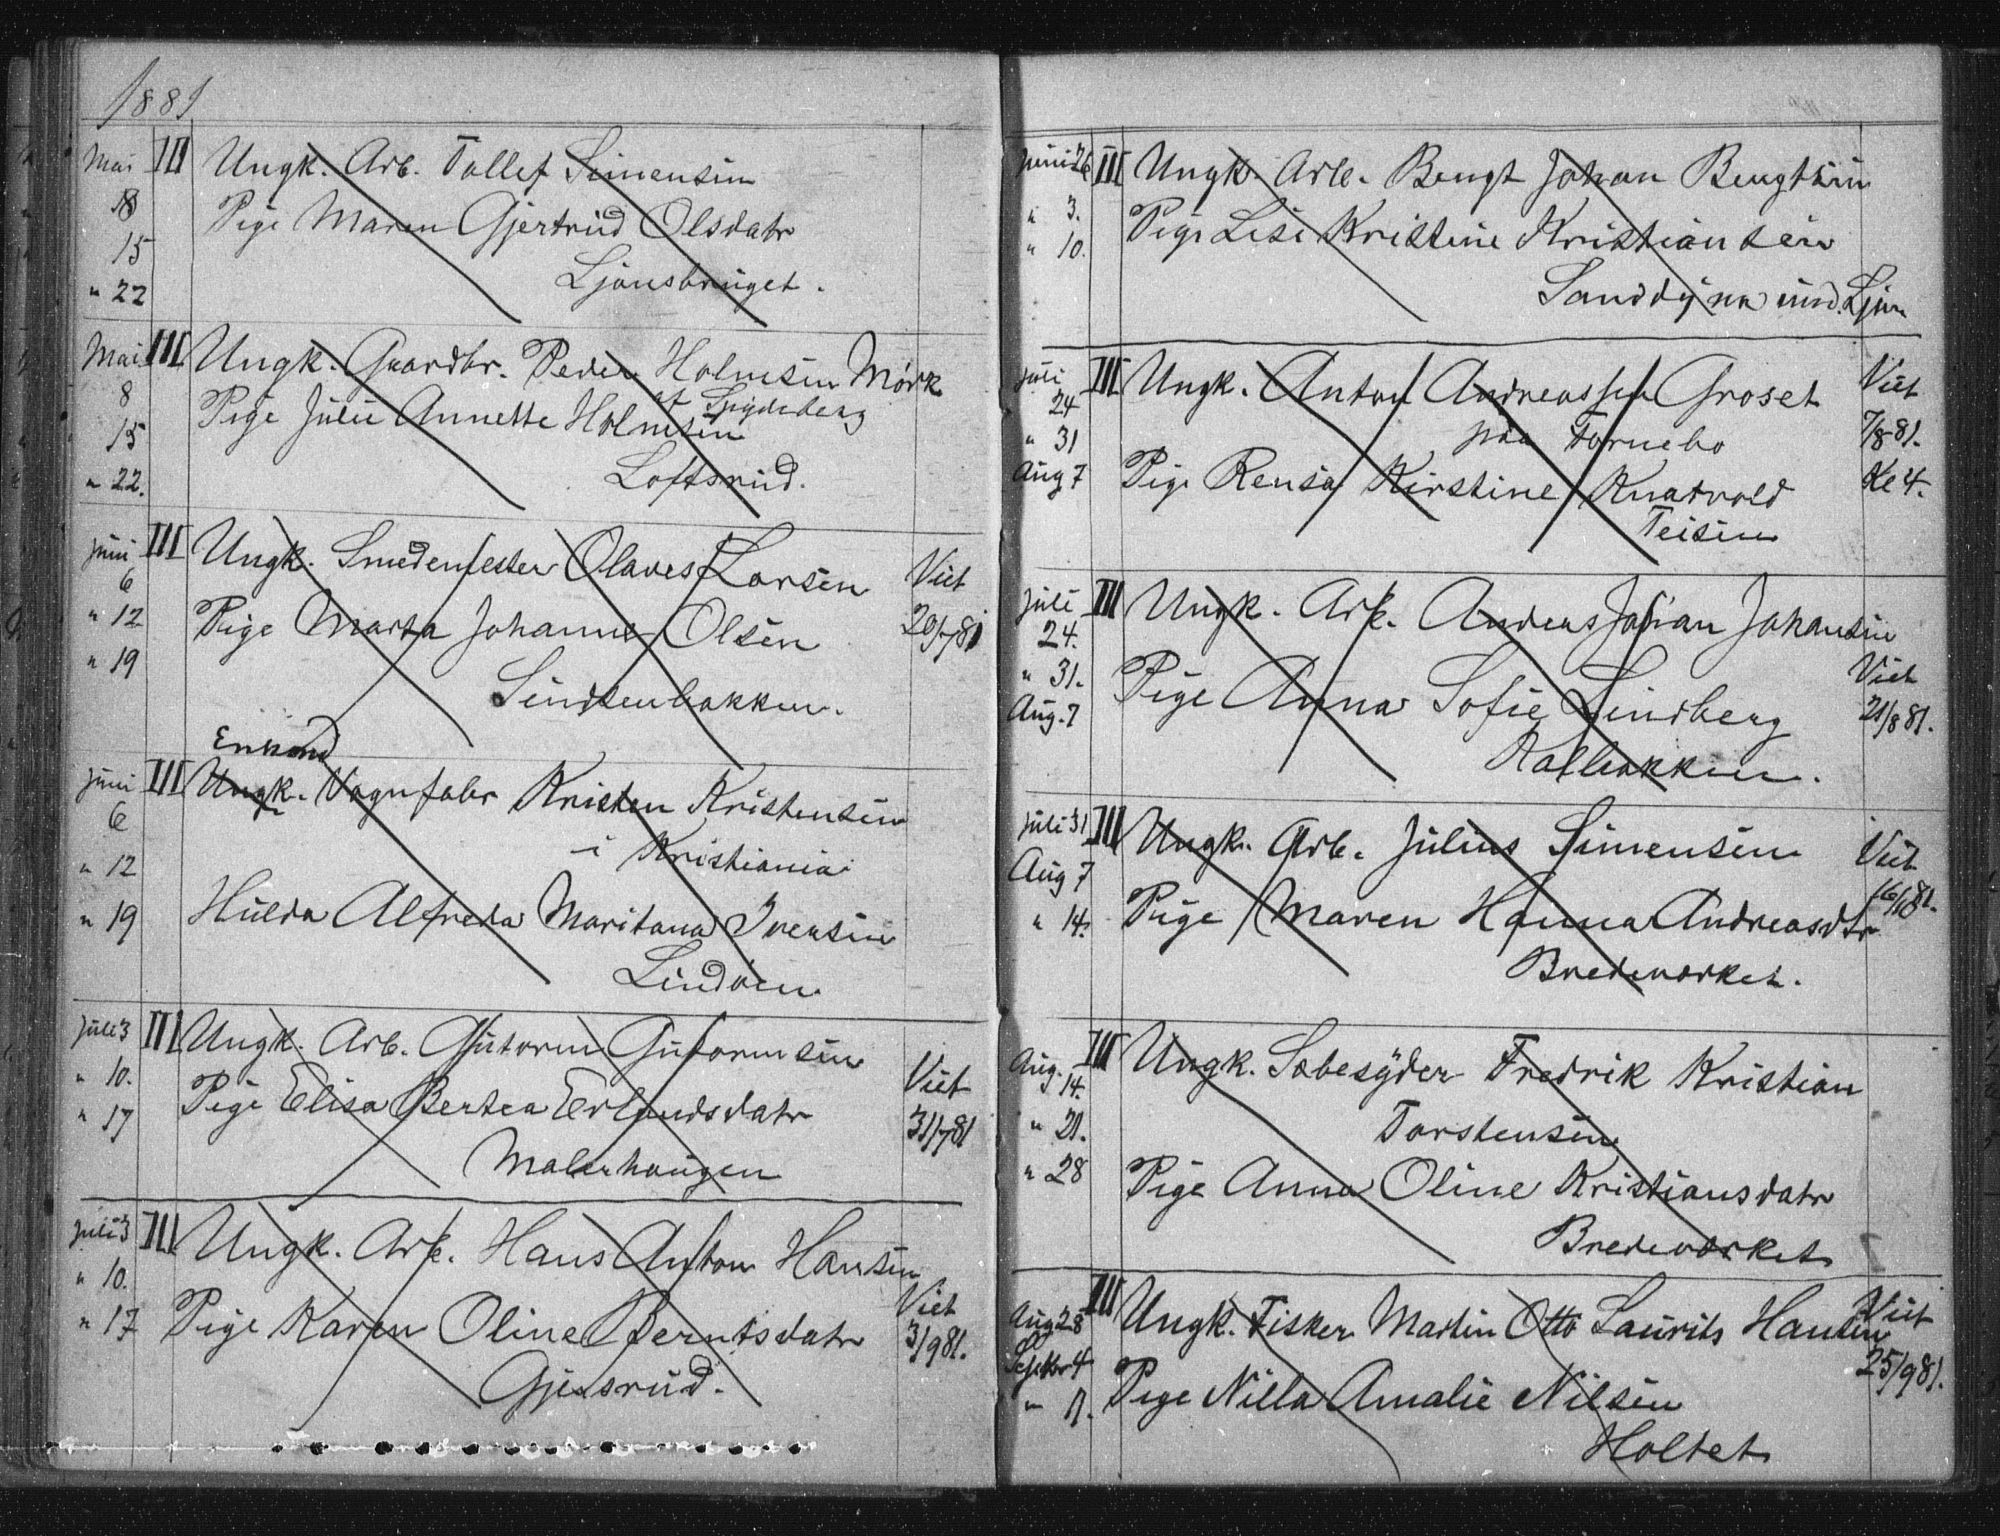 1881
Mai III Ungk. Arb. Tollef Simensen
8 Pige Maren Gjertrud Olsdatr
15 Ljansbruget.
" 22
Mai III Ungk. Gaardbr. Peder Holmsen Mörk
8 af Spydeberg
15 Pige Julie Annette Holmsen
" 22. Loftsrud.
Juni III Ungk. Smedemester Olaves Larsen Viet
6 Pige Marta Johanne Olsen 20/7 81
" 12 Sindsenbakken.
" 19
Enkemd
Juni III Ungk. Vognfabr Kristen Kristensen
6 i Kristiania
" 12 Hulda Alfreda Maritana Ivensen
" 19 Lindöen
Juli 3 III Ungk. Arb. Gutorm Gutormsen
" 10. Pige Elisa Bertea Erlandsdatr Viet
" 17 Malerhaugen 31/7 81
Juli 3 III Ungk. Arb. Hans Anton Hansen
" 10. Pige Karen Oline Berntsdatr Viet
" 17 Gjersrud. 3/9 81.
Juni 26 III Ungk. Arb. Bengt Johan Bengtsen
" 3. Pige Lise Kristine Kristiansen
" 10. Sanddyna und. Ljan
Juli III Ungk. Anton Andreassen Groset Viet
24 paa Fornebo 7/8 81.
" 31 Pige Rensa Kirstine Knatvold Ke 4.
Aug 7 Teisen
Juli III Ungk. Arb. Andreas Johan Johansen
24. Pige Anna Sofie Lindberg Viet
" 31. Kalbakken. 21/8 81.
Aug. 7
Juli 31 III Ungk. Arb. Julius Simensen Viet
Aug 7 Pige Maren Hanna Andreasdtr 16/10 81.
" 14. Bredeværket.
Aug. III Ungk. Sæbesyder Fredrik Kristian
14. Torstensen
" 21. Pige Anna Oline Kristiansdatr
" 28 Bredeværket
Aug 28 III Ungk. Fisker Martin Otto Laurits Hansen Viet
Septbr 4 Pige Nilla Amalie Nilsen 25/9 81.
" 11. Holtet